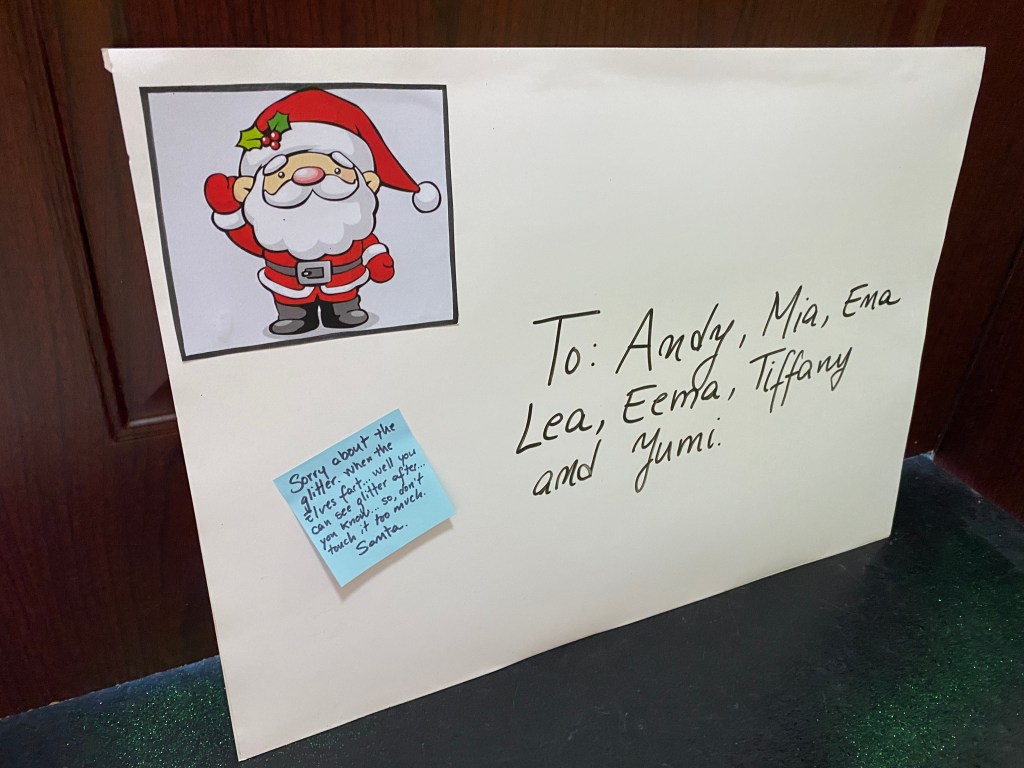 To: Andy, Mia, Ema
Lea, Eema, Tiffany
and Yumi.
Sorry about the
glitter. when the
Elves fart... well you
can see glitter after...
you know... so, don't
touch it too much.
Santa.